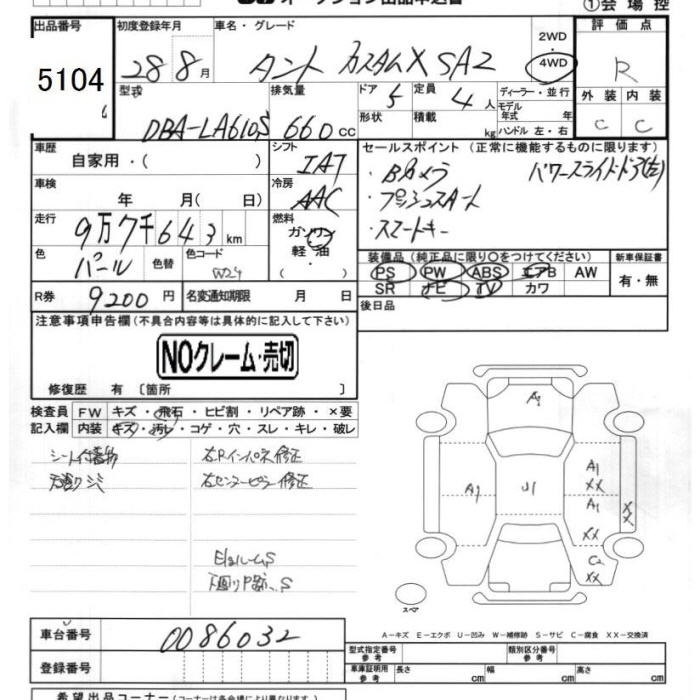 ①会場控
出品番号 初度登録年月 車名・グレード 2WD 4WD 評価点
5104 28年 8月 タント カスタムX SA2 R
型式 排気量 ドア 5 定員 4人 ディーラー・並行 外装 内装
DBA-LA610S 660cc 形状 積載 kg モデル年式 年 C C
ハンドル 左・右
車歴 シフト セールスポイント (正常に機能するものに限ります)
自家用・( ) IAT ・Bカメラ パワースライドドア(左)
車検 冷房 ・プッシュスタート
年 月( 日) AAC ・スマートキー
走行 燃料
9万7千643km ガソリン・軽油・
色 色替 色コード 装備品 (純正品に限り○をつけてください) 新車保証書
パール W24 PS PW ABS エアB AW 有・無
R券 名変通知期限 月 日 SR ナビ TV カワ
9200円 後日品
注意事項申告欄(不具合内容等は具体的に記入して下さい)
NOクレーム・売切
修復歴 有 [箇所 ]
検査員 FW キズ・飛石・ヒビ割・リペア跡・×要
記入欄 内装 キズ・汚レ・コゲ・穴・スレ・キレ・破レ
右Rインパネ修正
右センターピラー修正
A1
A1 XX
A1 U1 A1 XX
XX
C2
XX
下廻り S
スペア
A-キズ E-エクボ U-凹み W-補修跡 S-サビ C-腐食 XX-交換済
車台番号 0086032
型式指定番号 参考 類別区分番号 参考
登録番号 車庫証明用 参考 長さ cm 幅 cm 高さ cm
希望出品コーナー (コーナーは各会場により異なります)